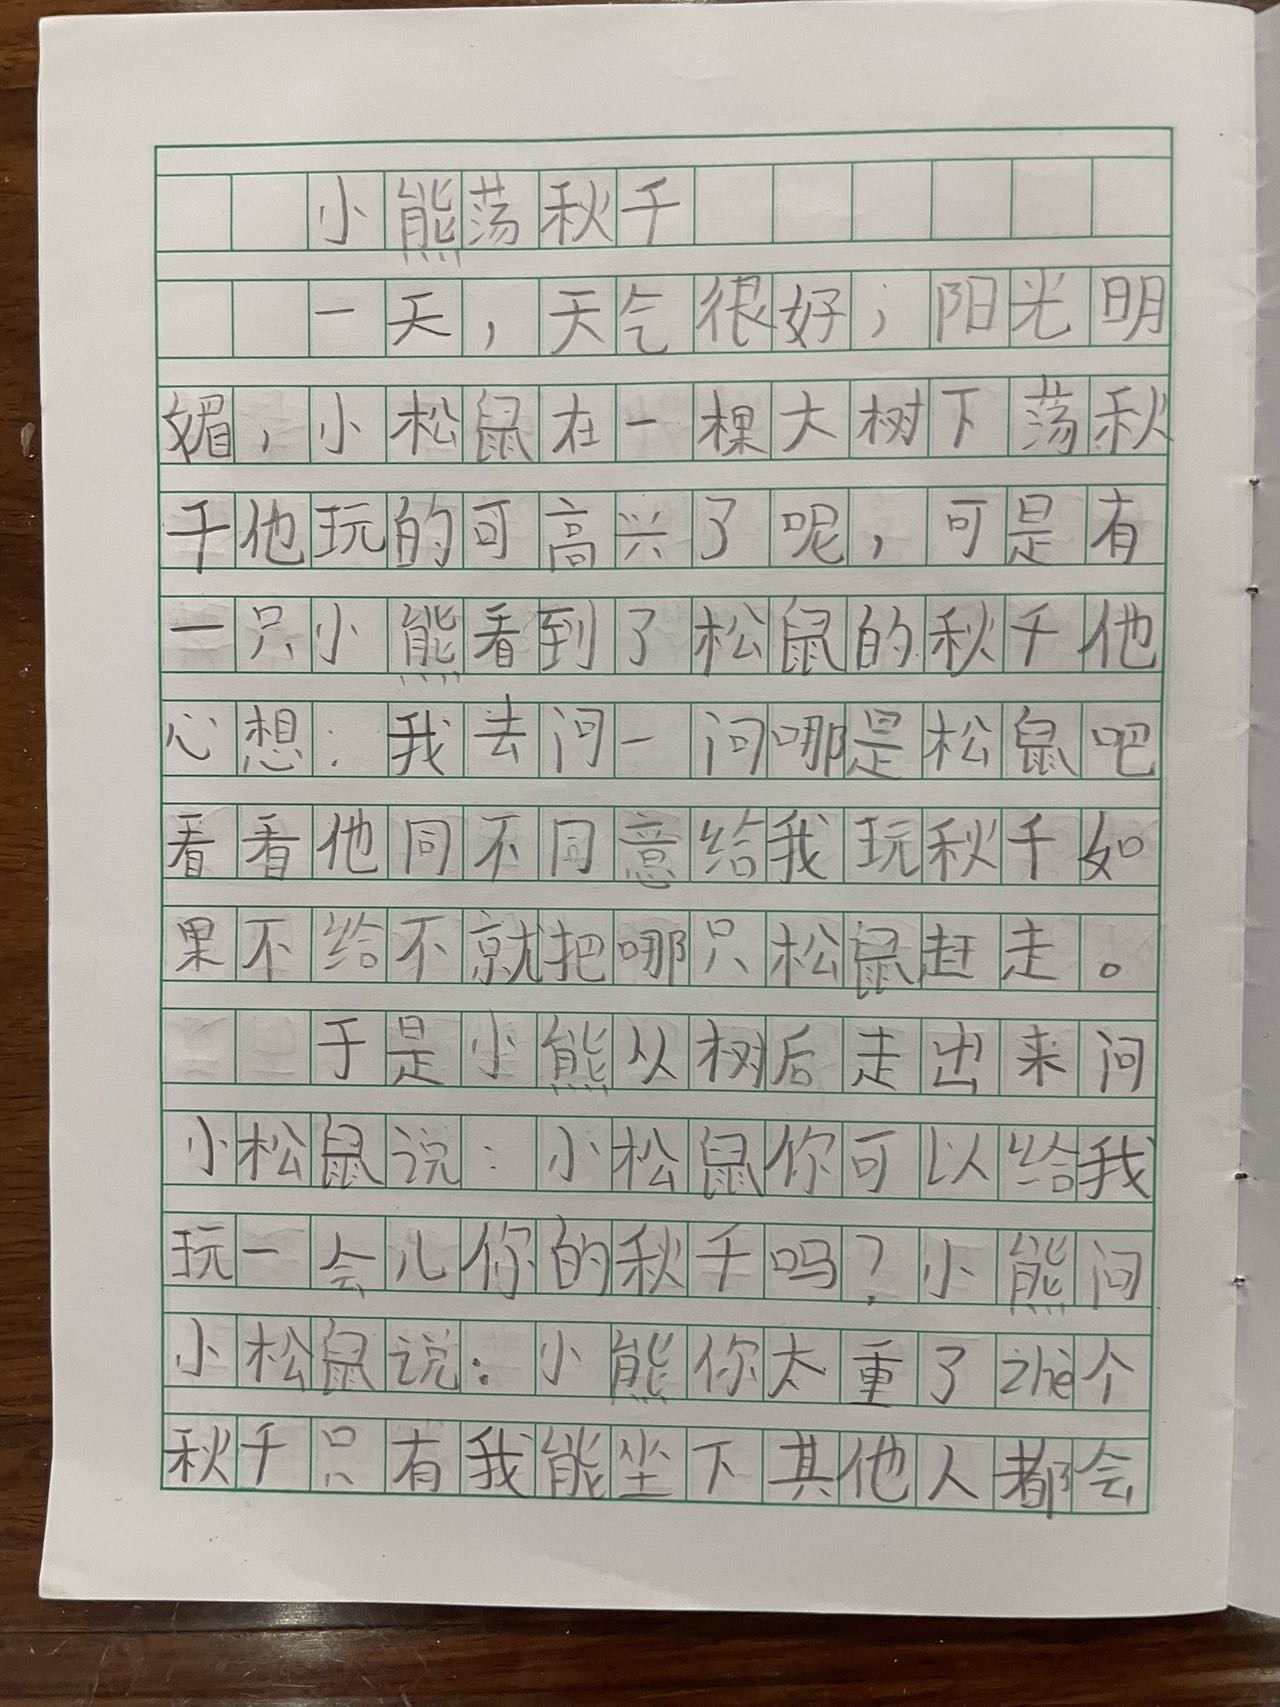 小熊荡秋千
一天，天气很好；阳光明
媚，小松鼠在一棵大树下荡秋
千他玩的可高兴了呢，可是有
一只小熊看到了松鼠的秋千他
心想：我去问一问哪是松鼠吧
看看他同不同意给我玩秋千如
果不给不就把哪只松鼠赶走。
于是小熊从树后走出来问
小松鼠说：小松鼠你可以给我
玩一会儿你的秋千吗？小熊问
小松鼠说：小熊你太重了zhè个
秋千只有我能坐下其他人都会